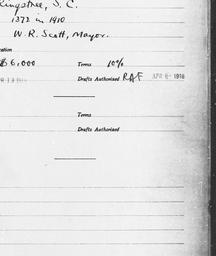 Kingstree, S. C.
1372 in 1910
W. R. Scott, Mayor.
$6,000 Terms 10%
Drafts Authorized RAF APR 6- 1916
Terms
Drafts Authorized